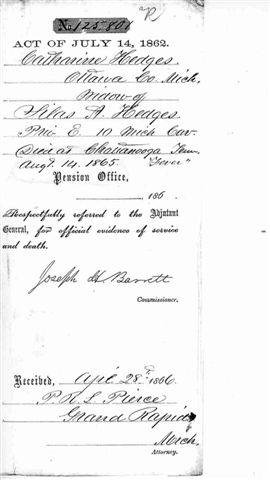 No. 125.801
ACT OF JULY 14, 1862.
Catharine Hedges.
Ottawa Co. Mich.
Widow of
Silas A. Hedges.
Priv E. 10 Mich Cav.
Died at Chattanooga Tenn
Augt. 14. 1865 "Fever"
Pension Office,
186 .
Respectfully referred to the Adjutant
General, for official evidence of service
and death.
Joseph H Barrett
Commissioner.
Received, Apl 28th 1866
P. R. L. Pierce
Grand Rapids
Mich.
Attorney.